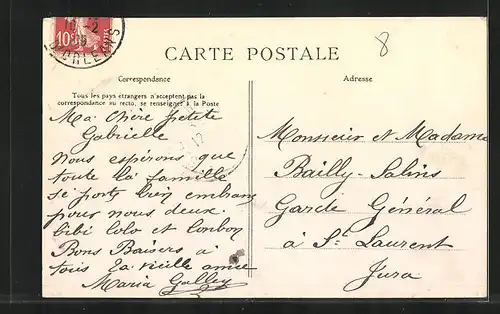 10c
10-2
ORLEANS
8
CARTE POSTALE
Correspondance
Adresse
Tous les pays étrangers n'acceptent pas la
correspondance au recto, se renseigner à la Poste
Ma chère petite
Gabrielle
Nous espérons que
toute la famille
se porte bien embrass
pour nous deux.
bibi lolo et
Bons Baisers à
tous ta vieille amie
Maria
Monsieur et Madame
Bailly-Salins
Garde Général
à St Laurent
Jura